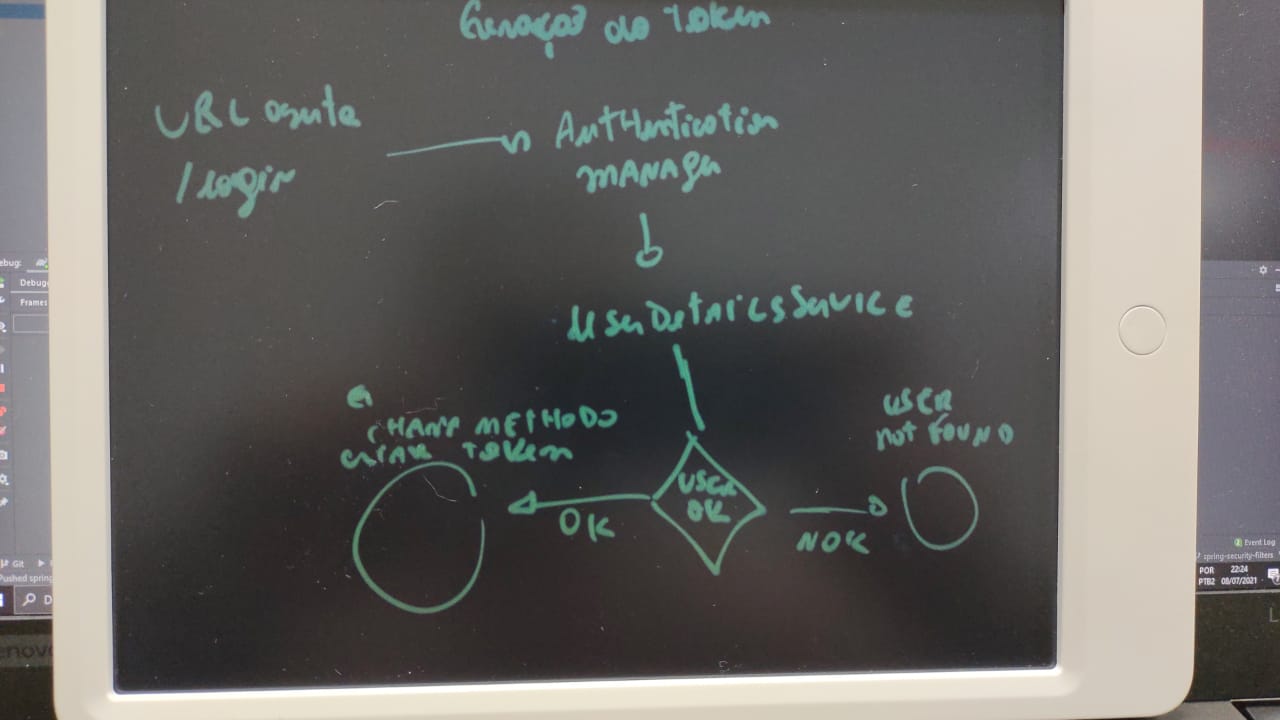 Geração do Token
URL
/login
Authentication
MANAger
UserDetailsService
CHAMA METHODO
criar token
USER
OK
OK
NOK
USER
not FOUND
ebug:
Debug
Frames
Git
Pushed spring
enovo
Event Log
spring-security-filters
POR
22:24
PTB2
08/07/2021